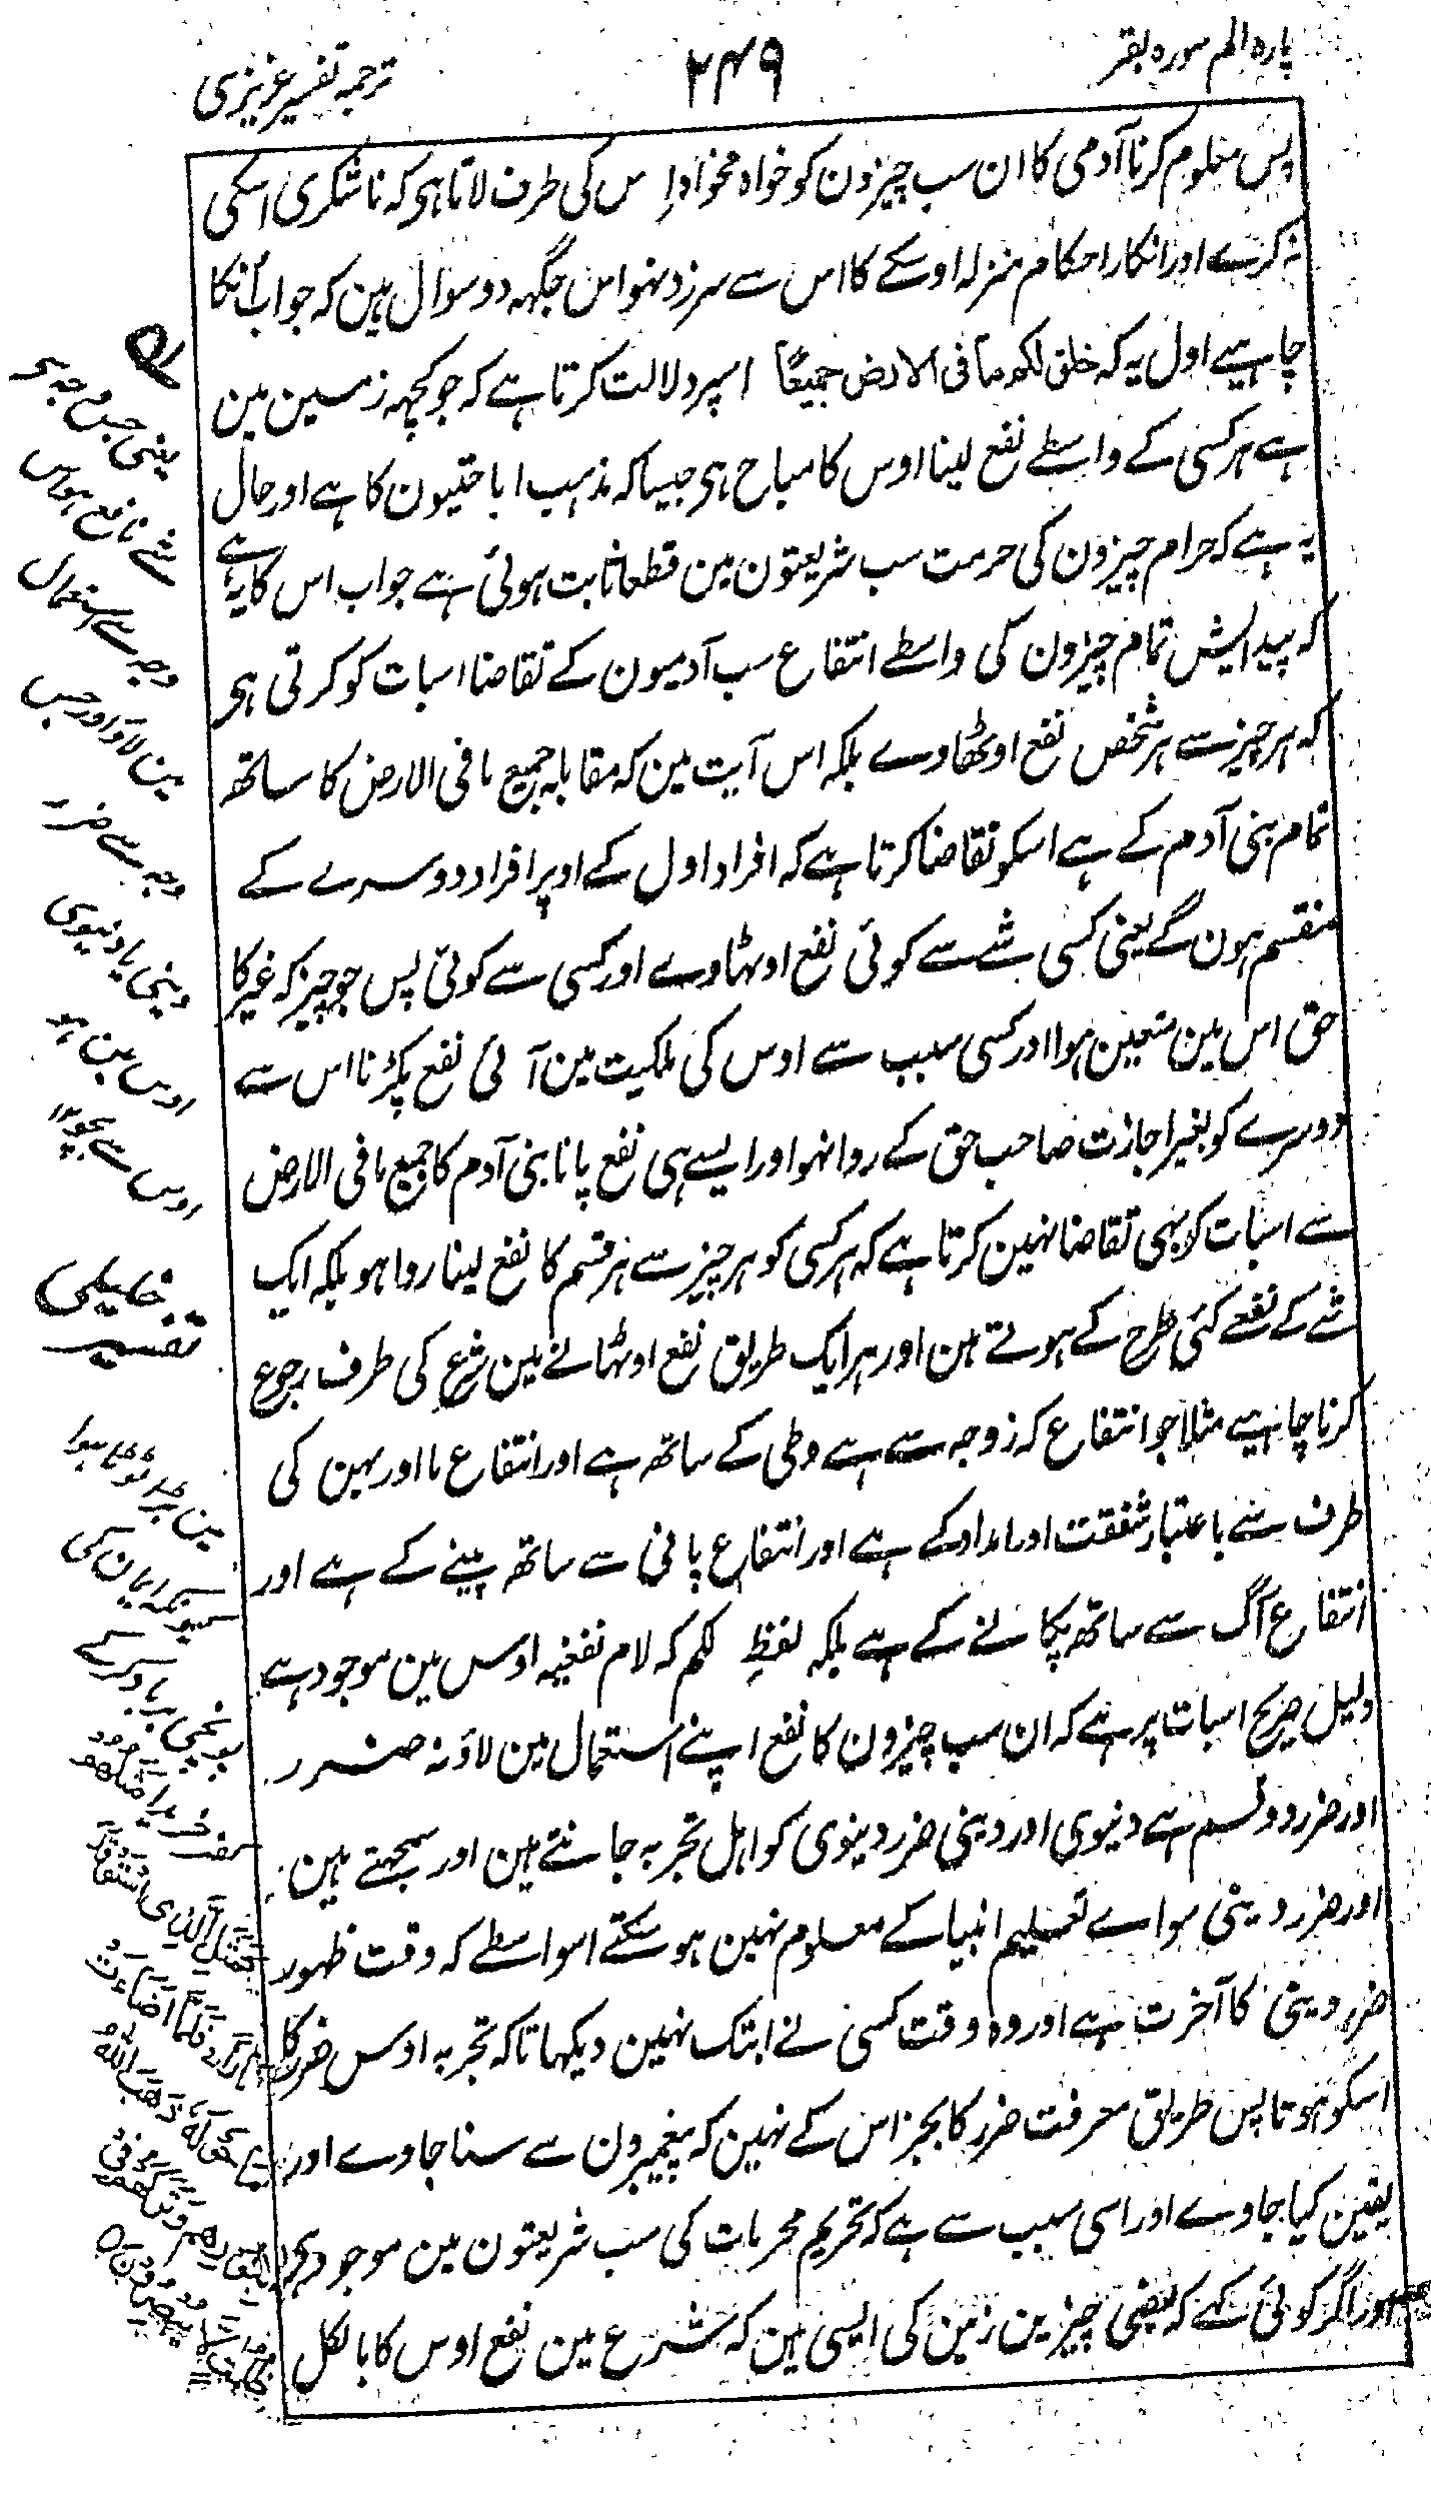 پارہ الم سورہ بقر
۲۴۹
ترجمہ تفسیر عزیزی
پس معلوم کرنا آدمی کا ان سب چیزون کو خواہ مخواہ اِس کی طرف لاتا ہی کہ ناشکری اسکی
نہ کرے اور انکار احکام منزلہ اوسکے کا اس سے سرزد نہو اس جگہہ دو سوال ہین کہ جواب اُنکا
چاہیے اول یہ کہ خلق لکم ما فی الارض جمیعًا اسپر دلالت کرتا ہے کہ جو کچہہ زمین مین
ہے ہر کسی کے واسطے نفع لینا اوس کا مباح ہی جیسا کہ مذہب اباحتیون کا ہے اور حال
یہ ہے کہ حرام چیزون کی حرمت سب شریعتون مین قطعا ثابت ہوئی ہے جواب اس کا یہ ہے
کہ پیدایش تمام چیزون کی واسطے انتفاع سب آدمیون کے تقاضا اسبات کو کرتی ہی
کہ ہر چیز سے ہر شخص نفع اوٹھاوے بلکہ اس آیت مین کہ مقابلہ جمیع ما فی الارض کا ساتھ
تمام بنی آدم کے ہے اسکو تقاضا کرتا ہے کہ افراد اول کے اوپر افراد دوسرے کے
منقسم ہون گے یعنی کسی شے سے کوئی نفع اوٹہاوے اور کسی سے کوئی پس جو چیز کہ غیر کا
حق اس مین متعین ہوا اور کسی سبب سے اوس کی ملکیت مین آئی نفع پکڑنا اس سے
دوسرے کو بغیر اجازت صاحب حق کے روا نہو اور ایسے ہی نفع پانا بنی آدم کا جمیع ما فی الارض
سے اسبات کو بہی تقاضا نہین کرتا ہے کہ ہر کسی کو ہر چیز سے ہر قسم کا نفع لینا روا ہو بلکہ ایک
شے کے نفعے کئی طرح کے ہوتے ہین اور ہر ایک طریق نفع اوٹہانے مین شرع کی طرف رجوع
کرنا چاہیے مثلا جو انتفاع کہ زوجہ سے ہے وطی کے ساتھ ہے اور انتفاع ما اور بہن کی
طرف سے باعتبار شفقت اور امداد کے ہے اور انتفاع پانی سے ساتھ پینے کے ہے اور
انتفاع آگ سے ساتھ پکانے کے ہے بلکہ لفظِ لکم کہ لام نفعیہ اوس مین موجود ہے
دلیل صریح اسبات پر ہے کہ ان سب چیزون کا نفع اپنے استعمال مین لاؤ نہ ضرر
اور ضرر دو قسم ہے دنیوی اور دینی ضرر دنیوی کو اہل تجربہ جانتے ہین اور سمجہتے ہین
اور ضرر دینی سواے تعلیم انبیا کے معلوم نہین ہو سکتے اسواسطے کہ وقت ظہور
ضرر دینی کا آخرت ہے اور وہ وقت کسی نے ابتک نہین دیکہا تاکہ تجربہ اوس ضرر کا
اسکو ہوتا پس طریق معرفت ضرر کا بجز اس کے نہین کہ پیغمبرون سے سنا جاوے اور
یقین کیا جاوے اور اسی سبب سے ہے کہ تحریم محرمات کی سب شریعتون مین موجود ہی
اور اگر کوئی کہے کہ بعضی چیزین زمین کی ایسی ہین کہ شرع مین نفع اوس کا بالکل
یعنی جس وجہ سے
شے نافع ہو اس
وجہ سے استعمال
مین لاؤ اور جس
وجہ سے ضرر
دینی یا دنیوی
اوس مین ہو
اوس سے بچو
تفسیر خلیلی